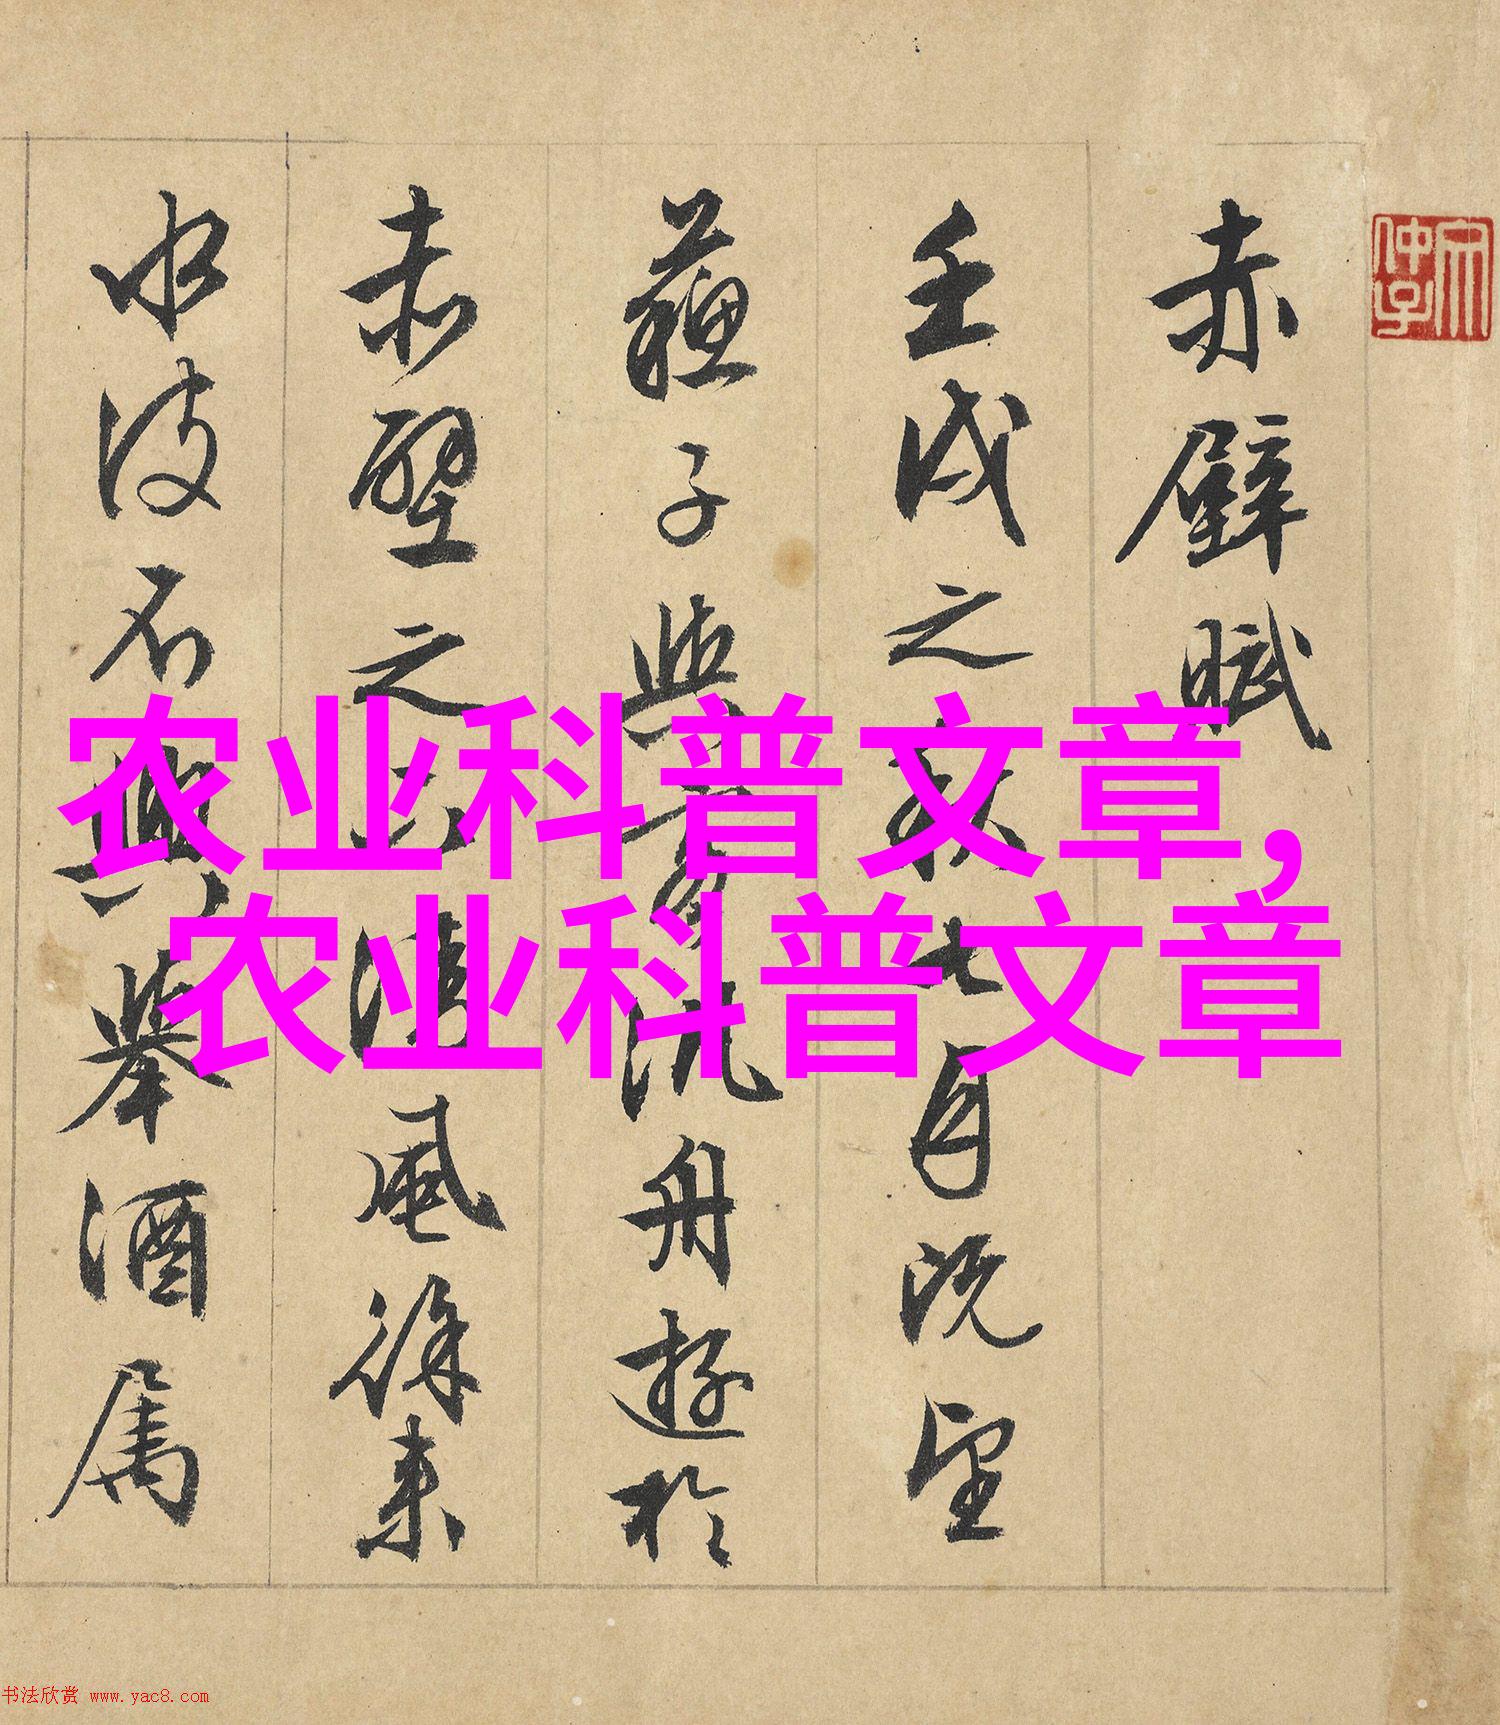 赤壁賦
壬戌之秋七月既望
蘇子與客汎舟遊於
赤壁之下清風徐來
水波不興舉酒屬
农业科普文章,
农业科普文章
书法欣赏 www.yac8.com